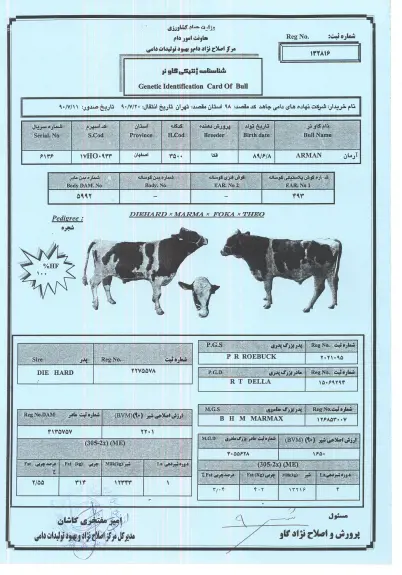 وزارت جهاد کشاورزی
معاونت امور دام
مرکز اصلاح نژاد دام و بهبود تولیدات دامی
شماره ثبت: Reg No.
۱۳۲۸۱۶
شناسنامه ژنتیکی گاو نر
Genetic Identification Card Of Bull
نام خریدار: شرکت نهاده های دامی جاهد کد مقصد: ۹۸ استان مقصد: تهران تاریخ انتقال: ۹۰/۷/۲۰ تاریخ صدور: ۹۰/۷/۱۱
نام گاو نر تاریخ تولد پرورش دهنده گله استان کد اسپرم شماره سریال
Bull Name Birth date Breeder H.Cod Province S.Cod Serial. No
آرمان ARMAN ۸۹/۶/۸ فکا ۳۵۰۰ اصفهان ۱۷HO۰۹۳۳ ۶۱۳۶
EAR. No 1 EAR. No 2 Body. No Body DAM. No
۳۹۳ – – ۵۹۹۲
Pedigree :
شجره
DIEHARD × MARMA × FOKA × THEO
%HF
۱۰۰
Sire پدر Reg No. شماره ثبت
DIE HARD ۲۲۷۵۵۷۸
P.G.S پدر بزرگ پدری Reg No. شماره ثبت
P R ROEBUCK ۲۰۲۱۰۹۵
P.G.D مادر بزرگ پدری Reg No. شماره ثبت
R T DELLA ۱۵۰۶۹۲۹۳
M.G.S پدر بزرگ مادری Reg No. شماره ثبت
B H M MARMAX ۱۲۶۸۵۳۰۰۷
Reg No.DAM شماره ثبت مادر (BVM) (۹۰) ارزش اصلاحی شیر
۳۱۳۵۷۵۷ ۲۲۰۱
(305-2x) (ME)
۲/۵۵ ۳۱۴ ۱۲۳۴۳ ۱
M.G.D شماره ثبت مادر بزرگ مادری (BVM) (۹۰) ارزش اصلاحی شیر
۳۰۵۵۶۲۸ ۱۶۵۰
(305-2x) (ME)
۳/۰۴ ۴۰۲ ۱۳۲۱۶ ۴
امیر مفتخری کاشان
مدیرکل مرکز اصلاح نژاد و بهبود تولیدات دامی
مسئول
پرورش و اصلاح نژاد گاو